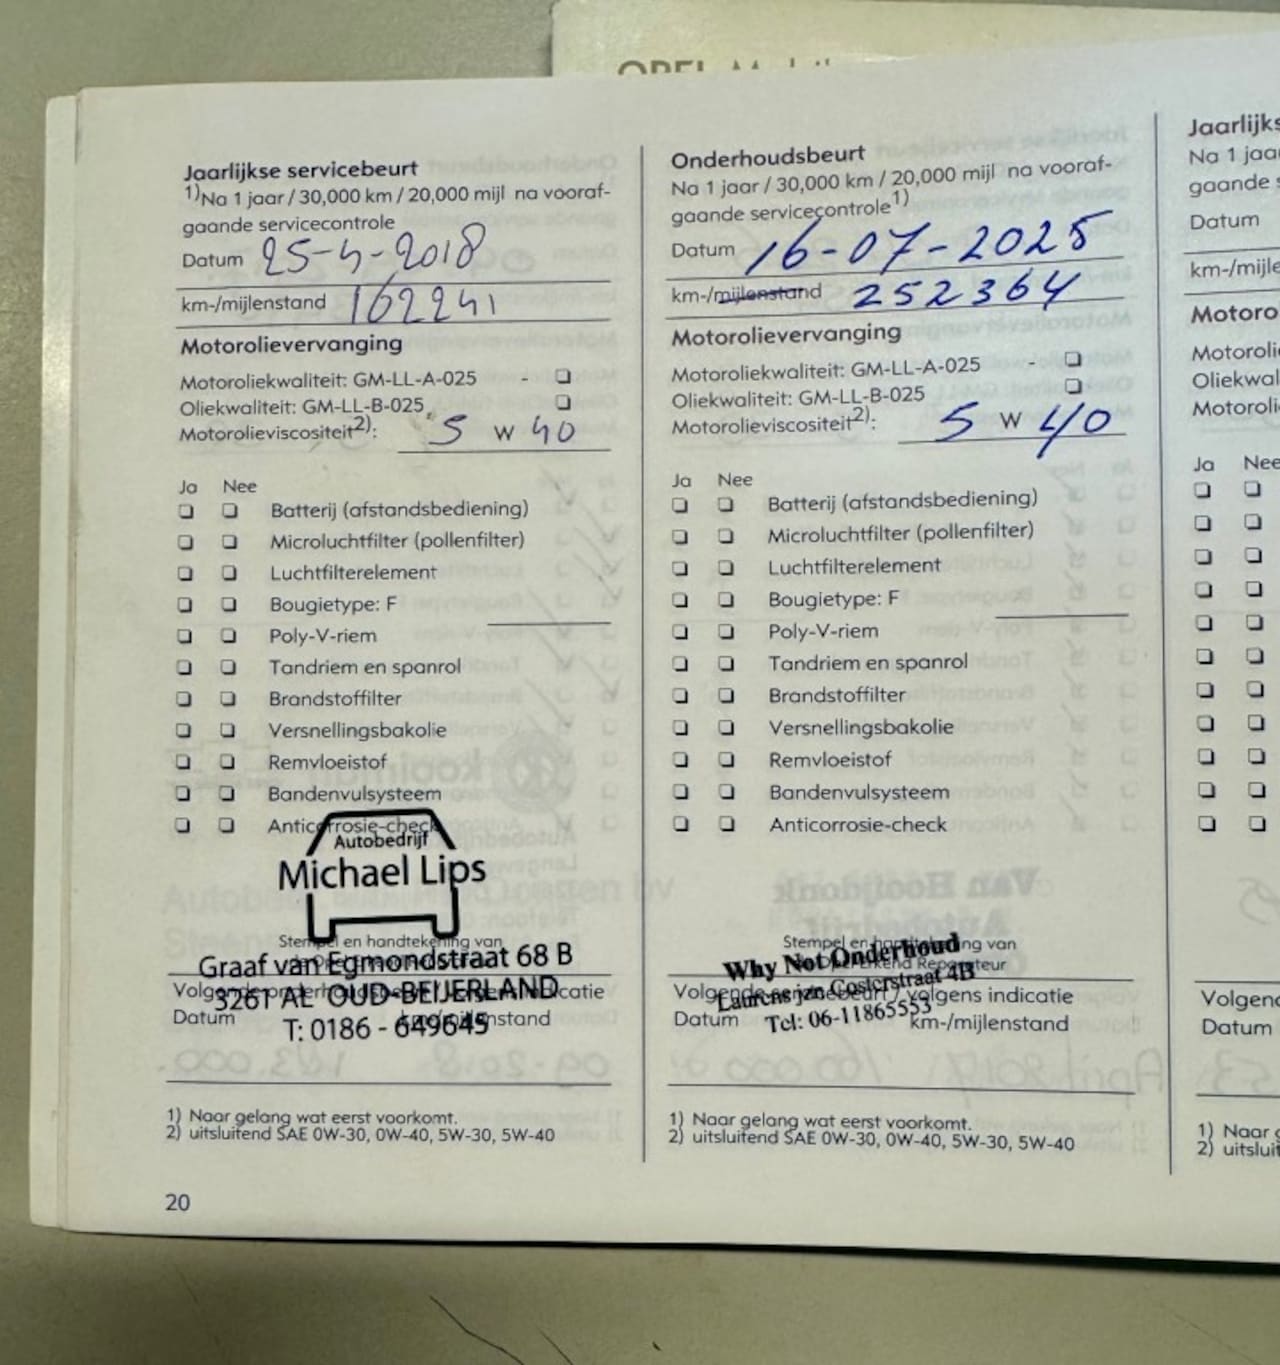 Jaarlijkse servicebeurt
1)Na 1 jaar / 30,000 km / 20,000 mijl na vooraf-
gaande servicecontrole
Datum 25-4-2018
km-/mijlenstand 162241
Motorolievervanging
Motoroliekwaliteit: GM-LL-A-025 -
Oliekwaliteit: GM-LL-B-025
Motorolieviscositeit2): 5 W 40
Ja Nee
Batterij (afstandsbediening)
Microluchtfilter (pollenfilter)
Luchtfilterelement
Bougietype: F
Poly-V-riem
Tandriem en spanrol
Brandstoffilter
Versnellingsbakolie
Remvloeistof
Bandenvulsysteem
Anticorrosie-check
Autobedrijf
Michael Lips
Stempel en handtekening van
Graaf van Egmondstraat 68 B
3261 AL OUD-BEIJERLAND
T: 0186 - 649645
Volgende onderhoudsbeurt / volgens indicatie
Datum km-/mijlenstand
1) Naar gelang wat eerst voorkomt.
2) uitsluitend SAE 0W-30, 0W-40, 5W-30, 5W-40
20
Onderhoudsbeurt
Na 1 jaar / 30,000 km / 20,000 mijl na vooraf-
gaande servicecontrole1)
Datum 16-07-2025
km-/mijlenstand 252364
Motorolievervanging
Motoroliekwaliteit: GM-LL-A-025 -
Oliekwaliteit: GM-LL-B-025
Motorolieviscositeit2): 5 W 40
Ja Nee
Batterij (afstandsbediening)
Microluchtfilter (pollenfilter)
Luchtfilterelement
Bougietype: F
Poly-V-riem
Tandriem en spanrol
Brandstoffilter
Versnellingsbakolie
Remvloeistof
Bandenvulsysteem
Anticorrosie-check
Stempel en handtekening van
de Opel Erkend Reparateur
Why Not Onderhoud
Laurens jan Costerstraat 4B
Tel: 06-11865553
Volgende servicebeurt / volgens indicatie
Datum km-/mijlenstand
1) Naar gelang wat eerst voorkomt.
2) uitsluitend SAE 0W-30, 0W-40, 5W-30, 5W-40
Jaarlijks
Na 1 jaa
gaande s
Datum
km-/mijle
Motoro
Motoroli
Oliekwal
Motoroli
Ja Nee
Volgend
Datum
1) Naar g
2) uitsluit